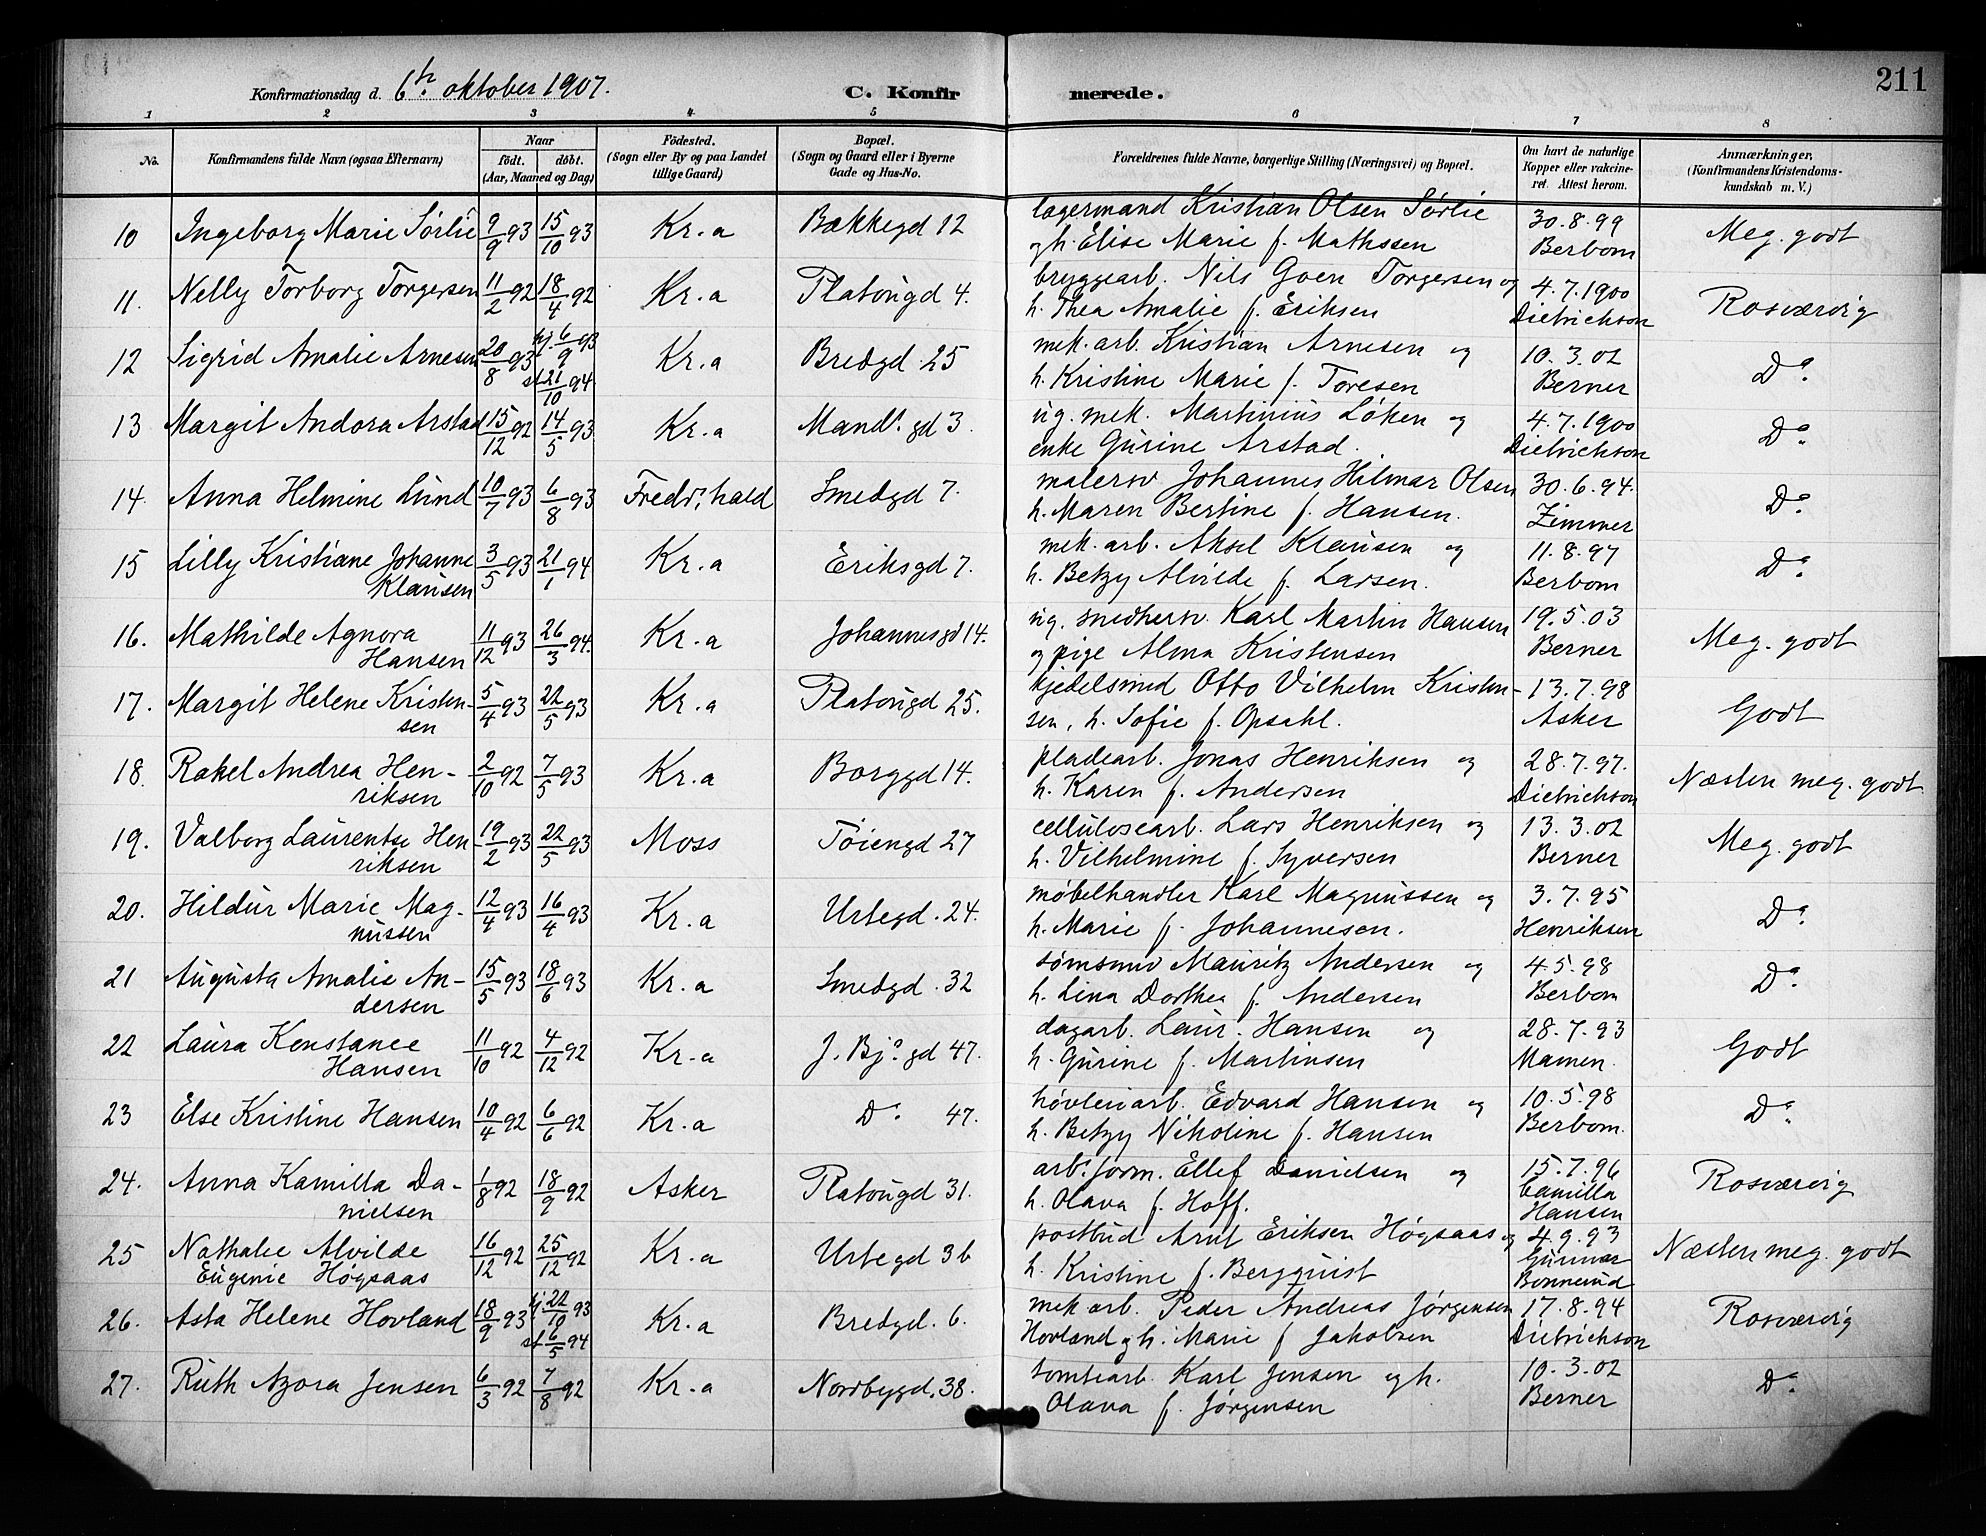 211
Konfirmationsdag d. 6te oktober 1907.
C. Konfirmerede.
1 2 3 4 5 6 7 8
No. | Konfirmandens fulde Navn (ogsaa Efternavn) | Naar født. døbt. (Aar, Maaned og Dag) | Födested. (Sogn eller By og paa Landet tillige Gaard) | Bopæl. (Sogn og Gaard eller i Byerne Gade og Hus-No. | Forældrenes fulde Navne, borgerlige Stilling (Næringsvei) og Bopæl. | Om havt de naturlige Kopper eller vakcineret. Attest herom. | Anmærkninger. (Konfirmandens Kristendomskundskab m. V.)
10 Ingeborg Marie Sørlie 9/9 93 15/10 93 Kr.a Bakkegd 12 lagermand Kristian Olsen Sørlie 30.8.99 Meg. godt
og h. Elise Marie f. Mathssen Berbom
11. Nelly Torborg Torgersen 11/2 92 18/4 92 Kr.a Platougd 4. bryggearb. Nils Goen Torgersen og 4.7.1900 Rosværdig
h. Thea Amalie f. Eriksen Dietrichson
12 Sigrid Amalie Arnesen 20/8 93 hj. 6/9 93 st 21/10 94 Kr.a Bredgd. 25 mek. arb. Kristian Arnesen og 10.3.02 Do.
h. Kristine Marie f. Toresen Berner
13 Margit Andora Arstad 15/12 92 14/5 93 Kr.a Mands.gd 3. ug. mek. Martinius Løken og 4.7.1900 Do.
enke Gurine Arstad. Dietrichson
14. Anna Helmine Lund 10/7 93 6/8 93 Fredr.hald Smedgd 7. malersv Johannes Hilmar Olsen 30.6.94. Do.
h. Maren Bertine f. Hansen. Zimmer
15 Lilly Kristiane Johanne 3/5 93 21/1 94 Kr.a Eriksgd 7. mek. arb. Aksel Klausen og 11.8.97 Do.
Klausen h. Betzy Alvilde f. Larsen. Berbom
16. Mathilde Agnora 11/12 93 26/3 94. Kr.a Johannesgd 14. ug. smedhersv. Karl Martin Hansen 19.5.03 Meg. godt
Hansen og pige Alma Kristensen Berner
17. Margit Helene Kristen- 5/4 93 22/5 93 Kr.a Platougd 25. kjedelsmed Otto Vilhelm Kristen- 13.7.98 Godt
sen sen, h. Sofie f. Opsahl. Asker
18. Rakel Andrea Hen- 2/10 92 7/5 93 Kr.a Borggd 14. pladearb. Jonas Henriksen og 28.7.97. Næsten meg. godt
riksen h. Karen f. Andersen Dietrichson
19. Valborg Laurentse Hen 19/2 93 22/5 93 Moss Tøiengd 27 cellulosearb. Lars Henriksen og 13.3.02 Meg. godt
riksen h. Vilhelmine f. Syversen Berner
20. Hildur Marie Mag- 12/4 93 16/4 93 Kr.a Urtegd. 24. møbelhandler Karl Magnussen og 3.7.95 Do.
nussen h. Marie f. Johannesen. Henriksen
21 Augusta Amalie An- 15/5 93 18/6 93 Kr.a Smedgd. 32 sømsmed Mauritz Andersen og 4.5.98 Do.
dersen h. Lina Dorthea f. Andersen Berbom
22 Laura Konstance 11/10 92 4/12 92 Kr.a J. Bjs. gd 47. dagarb. Laur. Hansen og 28.7.93 Godt
Hansen h. Gurine f. Martinsen Mamen.
23 Else Kristine Hansen 10/4 92 6/6 92 Kr.a Do. 47. høvleriarb. Edvard Hansen og 10.5.98 Do.
h. Betzy Nikoline f. Hansen Berbom.
24. Anna Kamilla Da- 1/8 92 18/9 92 Asker Platougd 31. arbs.form. Ellef Danielsen og 15.7.96 Rosværdig
nielsen h. Olava f. Hoff. Camilla Hansen
25 Nathalie Alvilde 16/12 92 25/12 92 Kr.a Urtegd 36 postbud Arnt Eriksen Høgsaas og 4.9.93 Næsten meg. godt
Eugenie Høgsaas h. Kristine f. Bergquist Gunnar
26. Asta Helene Hovland 18/9 93 hj. 22/10 93 st 6/5 94 Kr.a Bredgd. 6. mek arb. Peder Andreas Jørgensen 17.8.94 Rosværdig
Hovland og h. Marie f Jakobsen Dietrichson
27. Ruth Azora Jensen 6/3 92 7/8 92 Kr.a Nordbygd. 38. tomtearb. Karl Jensen og h. 10.3.02 Do.
Olava f. Jørgensen Berner